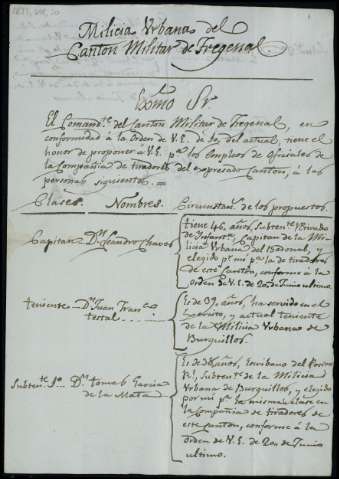 Milicia Urbana del
Canton Militar de Fregenal.
Exmo Sr
El Comand.te del Canton Militar de Fregenal, en
conformidad à la orden de V.E. de 20, del actual, tiene el
honor de proponer à V.E. p.a los Empleos de Oficiales de
la Compañia de tiradores del expresado Canton, à los
personas siguientes. =
Clases. Nombres. Circunstan.s de los propuestos.
Capitan D.n Leandro Chaves
tiene 46, años, Subten.te
de Infant.a, Capitan de la Mi-
licia Urbana del Bodonal, y
elegido p.r mi p.a la de tiradores
de este Canton, conforme à la
orden de V.E. de 20 de Junio ultimo.
teniente D.n Juan Fran.co
Es de 39, años, ha servido en el
Exercito, y actual teniente
de la Milicia Urbana de
Burguillos.
Subten.te 1.o D.n tomas Garcia
de la Mata
Es de años, Escribano del
Subten.te de la Milicia
Urbana de Burguillos, y elegido
por mi p.a la misma clase en
la Compañia de tiradores de
este canton, conforme à la
orden de V.E. de 20 de Junio
ultimo.